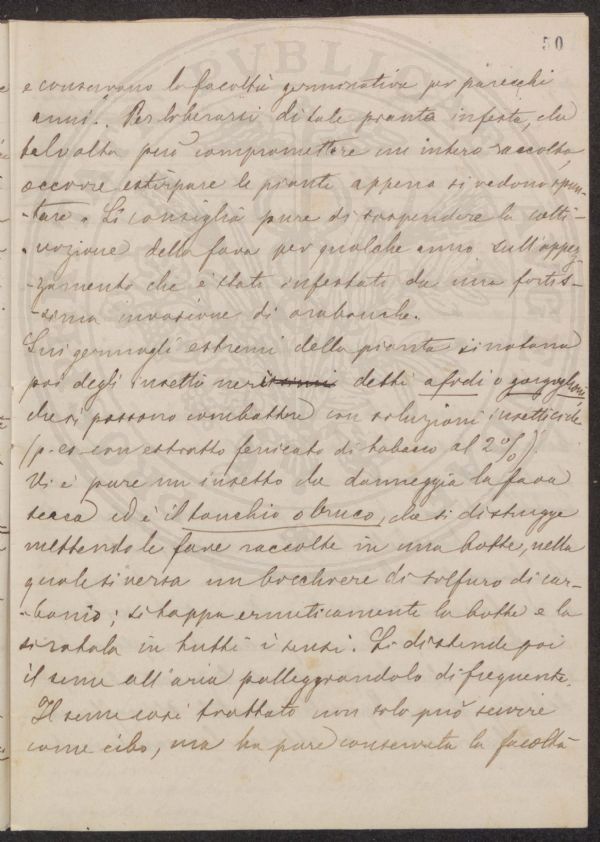 50
e conservano la facoltà germinativa per parecchi
anni. Per liberarsi di tale pianta infesta, che
talvolta può compromettere un intero raccolto,
occorre estirpare le piante appena si vedono spun-
-tare. Si consiglia pure di sospendere la colti-
-vazione della fava per qualche anno sull'appez-
-zamento che è stato infestato da una fortis-
-sima invasione di orobanche.
Sui germogli estremi della pianta si notano
poi degli insetti nerissimi detti afidi o gorgoglioni
che si possono combattere con soluzioni insetticide
(p. es. con estratto fenicato di tabacco al 2%).
Vi è pure un insetto che danneggia la fava
secca ed è il tonchio o bruco, che si distrugge
mettendo le fave raccolte in una botte, nella
quale si versa un bicchiere di solfuro di car-
-bonio; si tappa ermeticamente la botte e la
si rotola in tutti i sensi. Si distende poi
il seme all'aria palleggiandolo di frequente.
Il seme così trattato non solo può servire
come cibo, ma ha pure conservata la facoltà